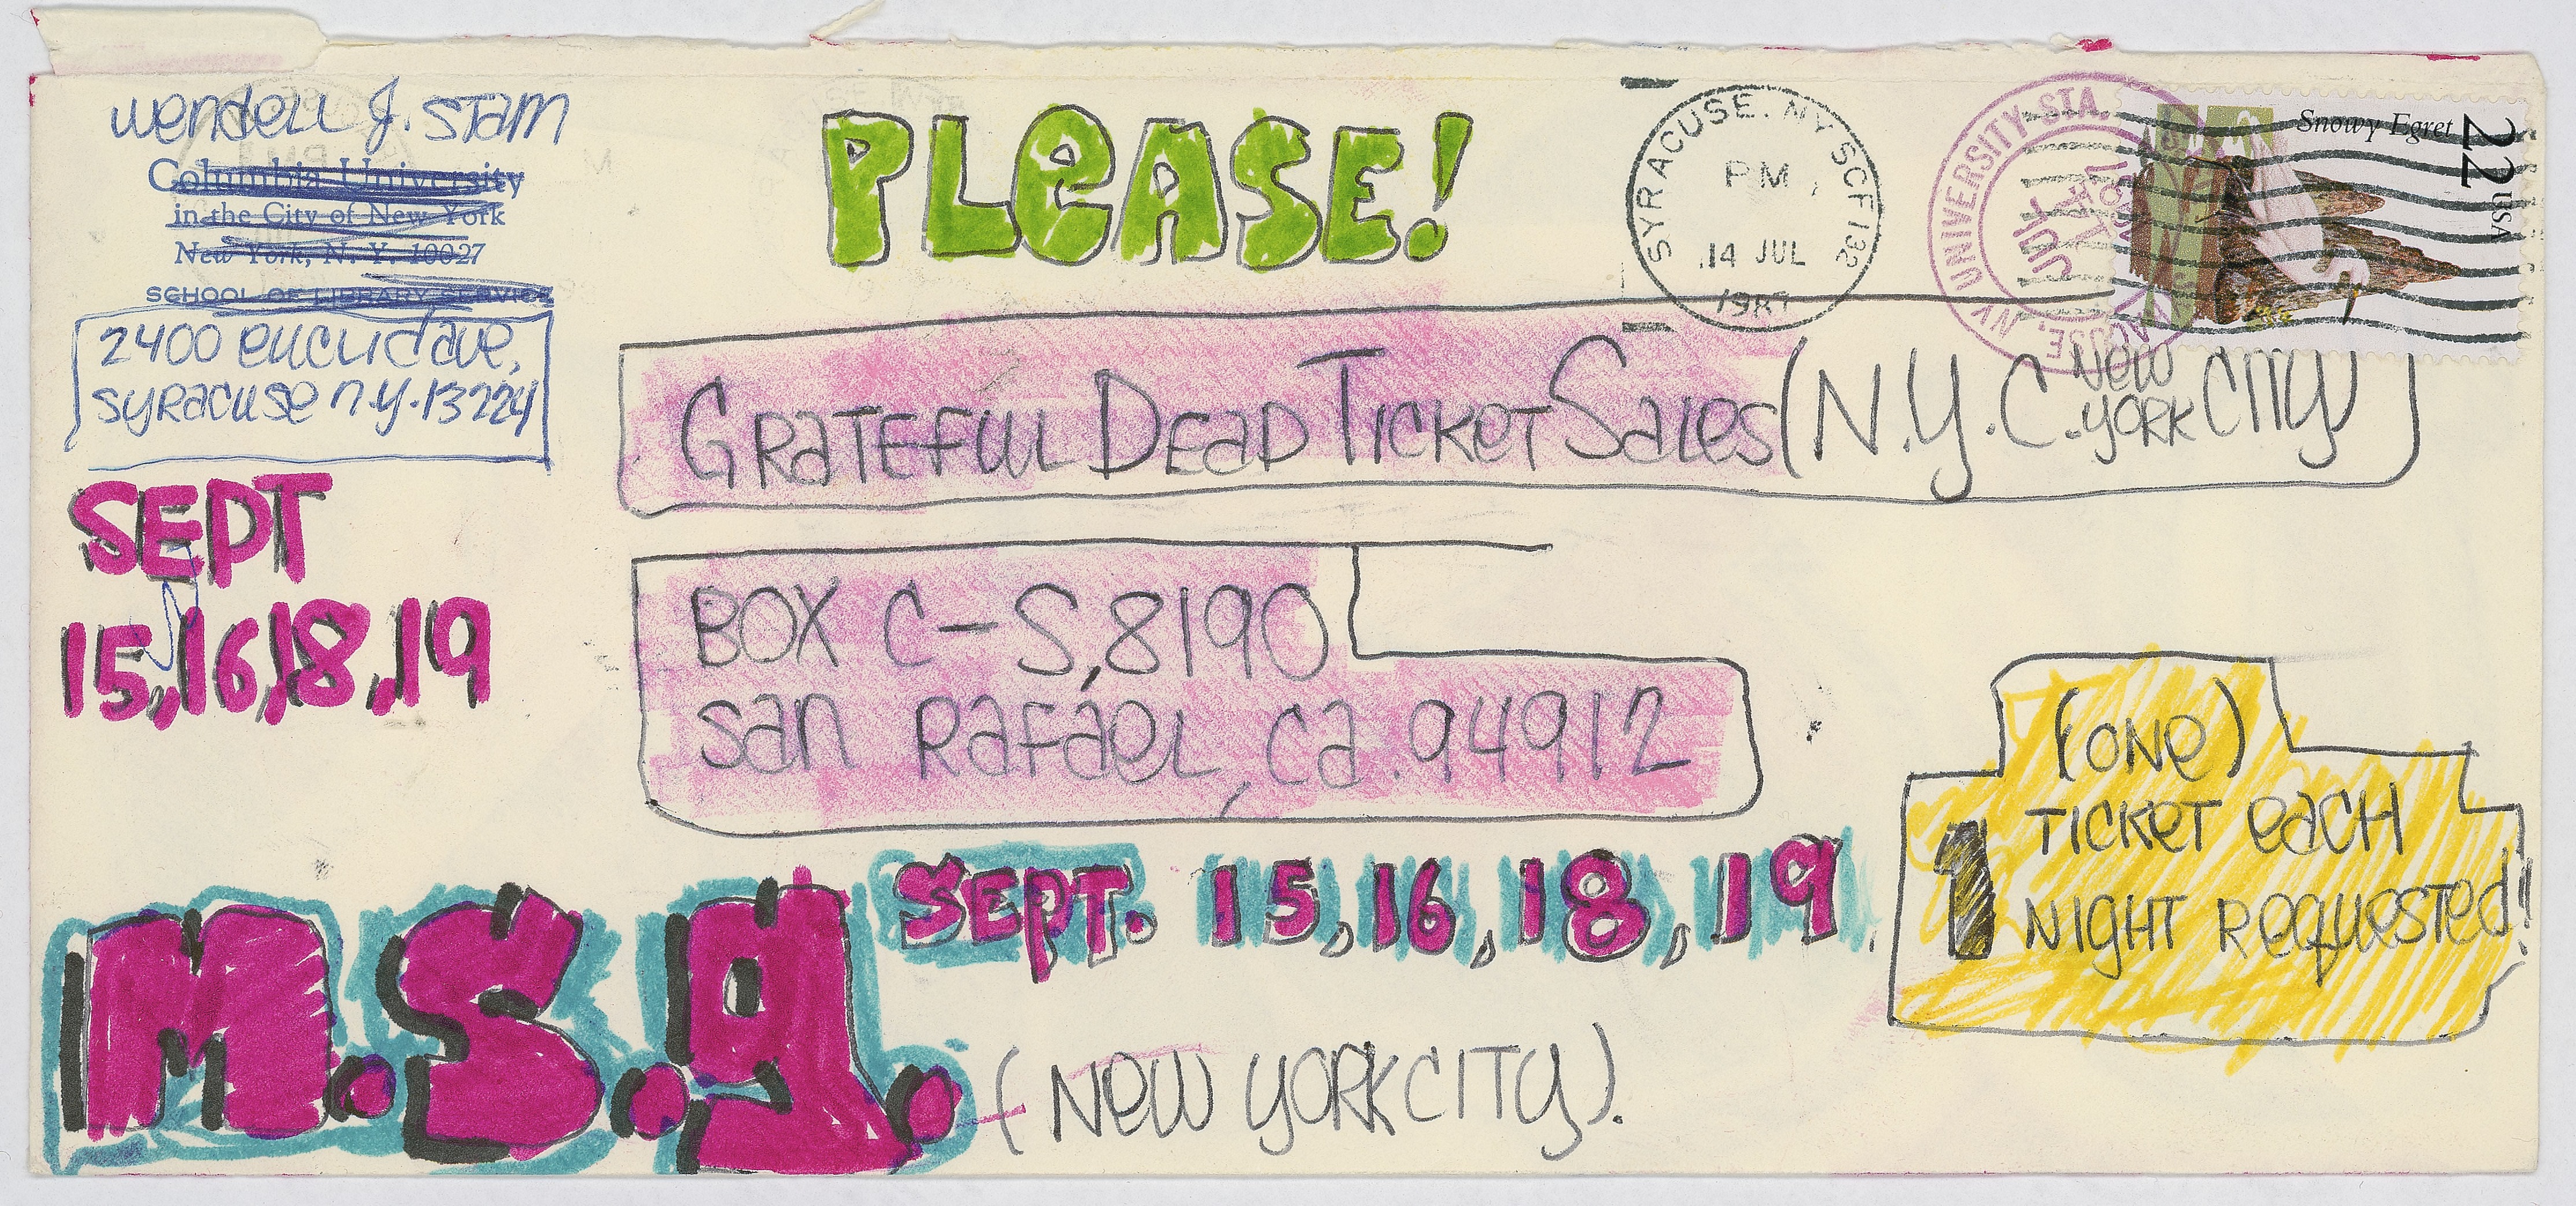 Wendell J. Stam
Columbia University
in the City of New York
New York, N. Y. 10027
SCHOOL OF LIBRARY SERVICE
2400 Euclid Ave,
Syracuse N.Y. 13224
PLEASE!
SYRACUSE, NY SCF 132
PM
14 JUL
1987
UNIVERSITY STA.
JUL
14
Snowy Egret
22
USA
GRATEFUL DEAD TICKET SALES (N.Y.C. NEW YORK CITY)
SEPT
15,16,18,19
BOX C-S,8190
San Rafael, Ca. 94912
(ONE)
1 TICKET each
NIGHT Requested!
M.S.G. SEPT. 15,16,18,19
(NEW YORK CITY).